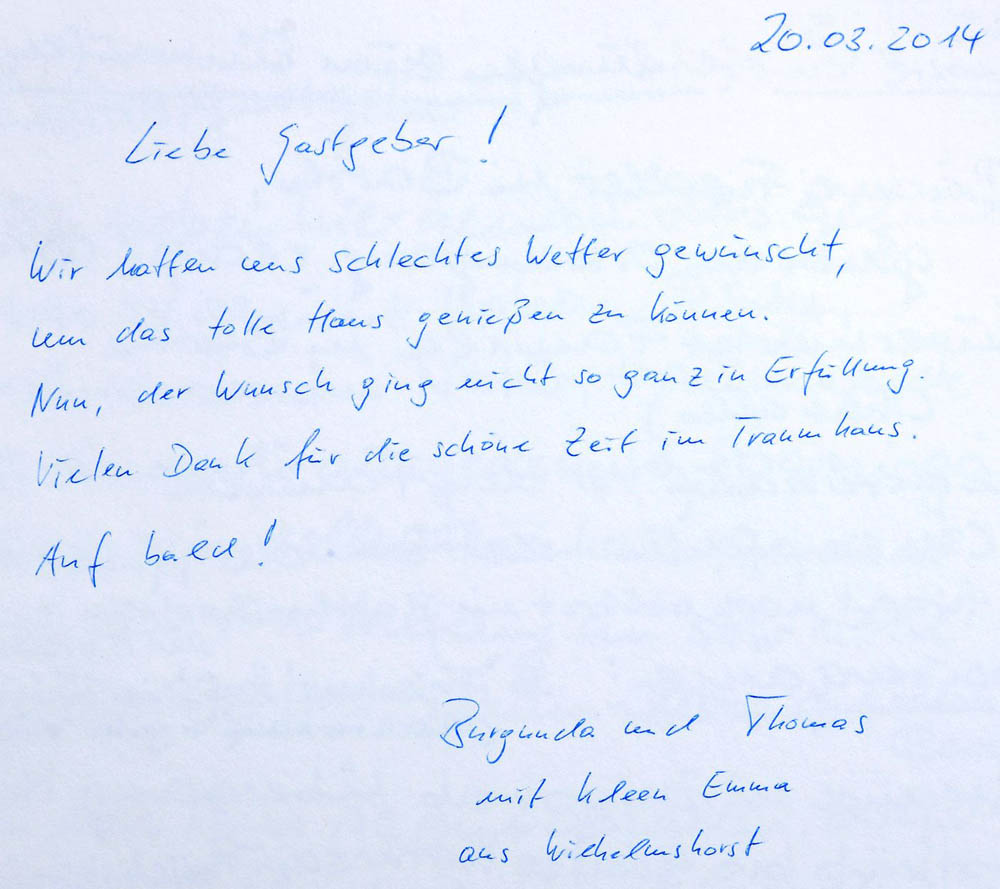 20.03.2014
Liebe Gastgeber!
Wir hatten uns schlechtes Wetter gewünscht,
um das tolle Haus genießen zu können.
Nun, der Wunsch ging nicht so ganz in Erfüllung.
Vielen Dank für die schöne Zeit im Traumhaus.
Auf bald!
Burgunda und Thomas
mit kleen Emma
aus Wilhelmshorst